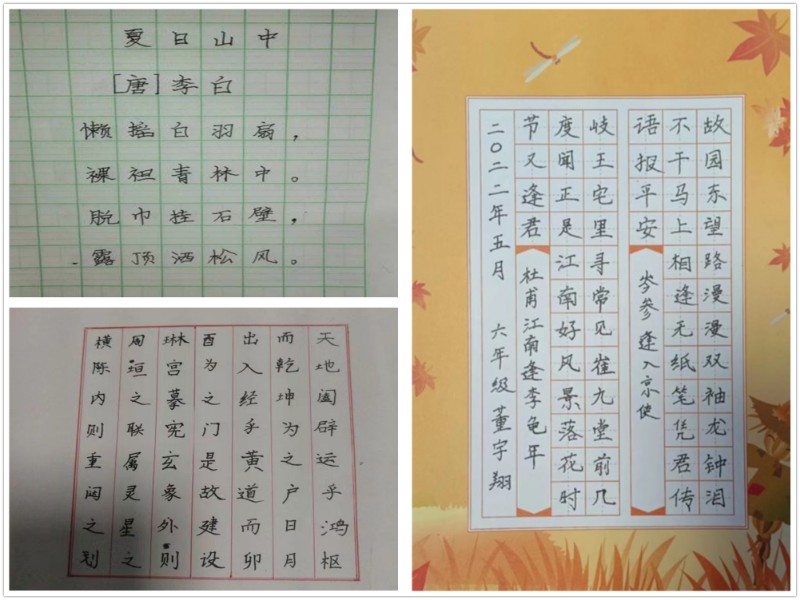 夏日山中
[唐]李白
懒摇白羽扇，
裸袒青林中。
脱巾挂石壁，
露顶洒松风。
天地阖辟运乎鸿枢
而乾坤为之户日月
出入经乎黄道而卯
酉为之门是故建设
琳宫摹宪玄象外则
周垣之联属灵星之
横陈内则重闼之划
故园东望路漫漫双袖龙钟泪
不干马上相逢无纸笔凭君传
语报平安 岑参逢入京使
岐王宅里寻常见崔九堂前几
度闻正是江南好风景落花时
节又逢君 杜甫江南逢李龟年
二〇二二年五月 六年级董宇翔